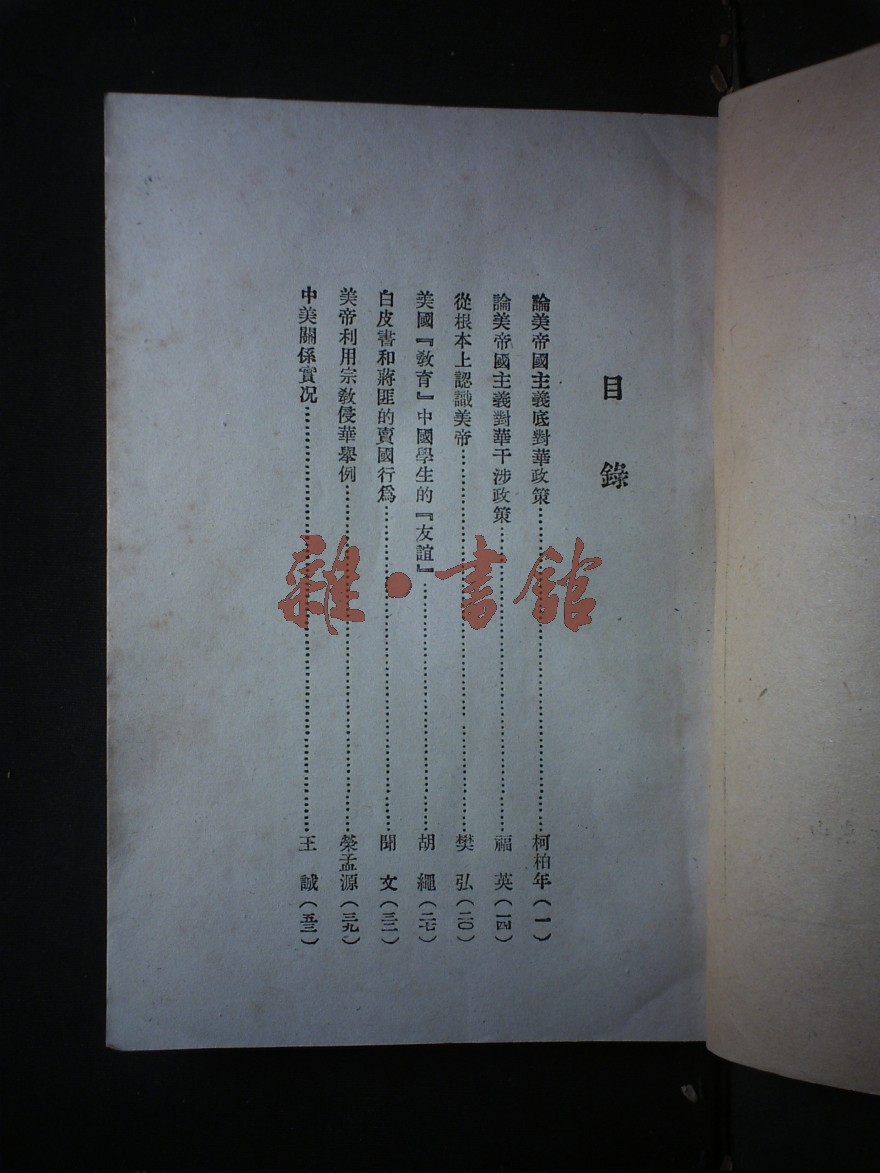 目錄
論美帝國主義底對華政策……柯柏年（一）
論美帝國主義對華干涉政策……福英（一四）
從根本上認識美帝……樊弘（二〇）
美國『教育』中國學生的『友誼』……胡繩（二七）
白皮書和蔣匪的賣國行爲……聞文（三三）
美帝利用宗教侵華舉例……榮孟源（三九）
中美關係實况……王誠（五三）
雜·書館